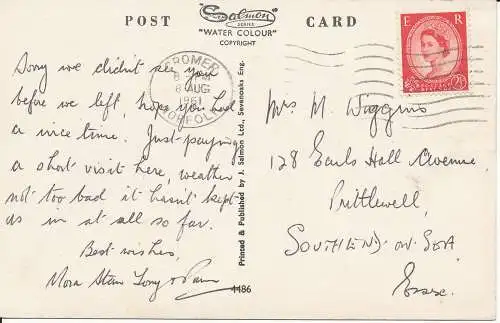 POST CARD
"Salmon"
SERIES
"WATER COLOUR"
COPYRIGHT
E R
CROMER
8 AUG
1961
NORFOLK
Sorry we didn't see you
before we left, hope you had
a nice time. Just paying
a short visit here, weather
not too bad it hasn't kept
us in at all so far.
Best wishes,
Nora Stan Tony + Pam
Printed & Published by J. Salmon Ltd., Sevenoaks Eng.
4486
Mrs M. Wiggins
128 Earls Hall Avenue,
Prittlewell,
SOUTHEND-ON-SEA
Essex.